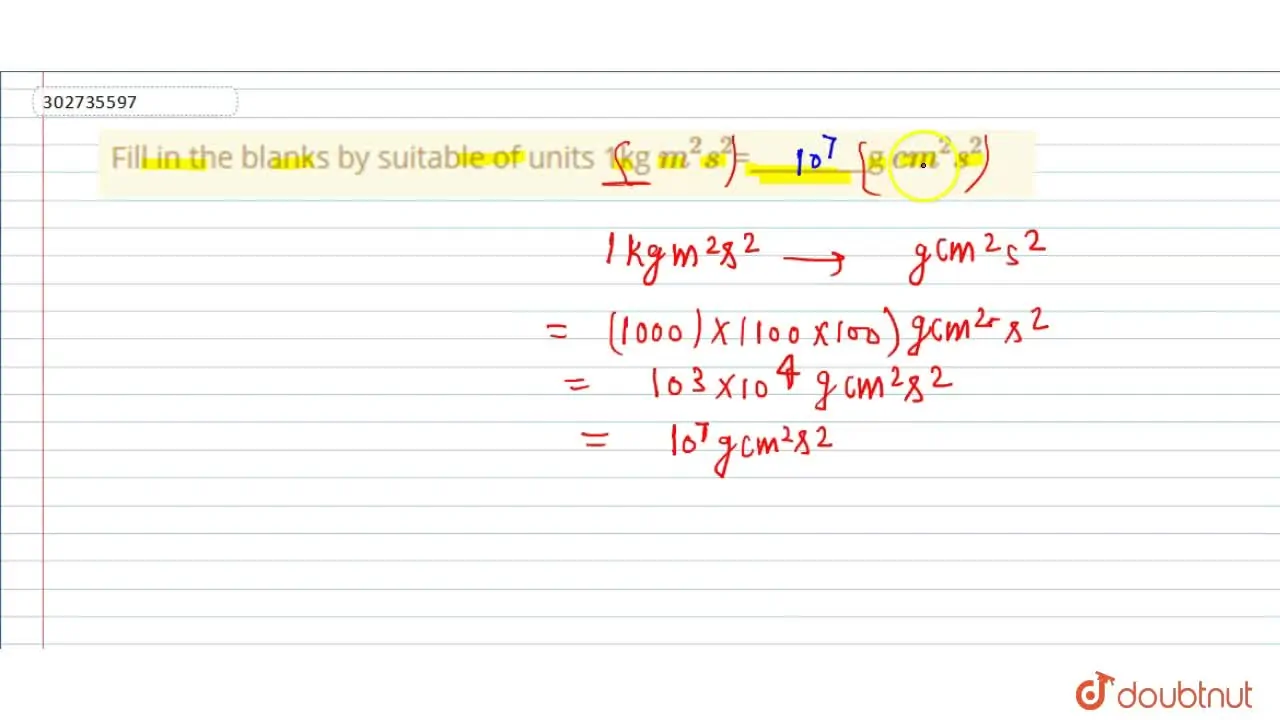 302735597
Fill in the blanks by suitable of units 1kg m²s² = 10⁷ (g cm² s²)
1 kg m²s² → g cm² s²
= (1000) × (100 × 100) g cm² s²
= 10³ × 10⁴ g cm² s²
= 10⁷ g cm² s²
doubtnut